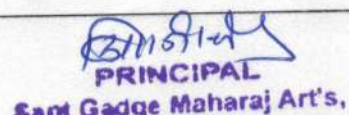 PRINCIPAL
Sant Gadge Maharaj Art's,